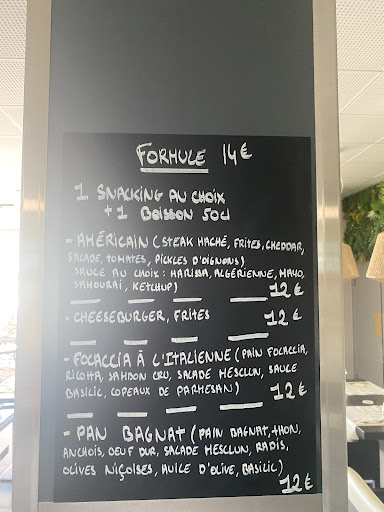 FORMULE 14€
1 SNACKING AU CHOIX
+ 1 BOISSON 50cl
- AMÉRICAIN (STEAK HACHÉ, FRITES, CHEDDAR,
SALADE, TOMATES, PICKLES D'OIGNONS)
SAUCE AU CHOIX : HARISSA, ALGÉRIENNE, MAYO,
SAMOURAÏ, KETCHUP) 12€
- CHEESEBURGER, FRITES 12€
- FOCACCIA À L'ITALIENNE (PAIN FOCACCIA,
RICOTTA, JAMBON CRU, SALADE MESCLUN, SAUCE
BASILIC, COPEAUX DE PARMESAN) 12€
- PAN BAGNAT (PAIN BAGNAT, THON,
ANCHOIS, OEUF DUR, SALADE MESCLUN, RADIS,
OLIVES NIÇOISES, HUILE D'OLIVE, BASILIC)
12€